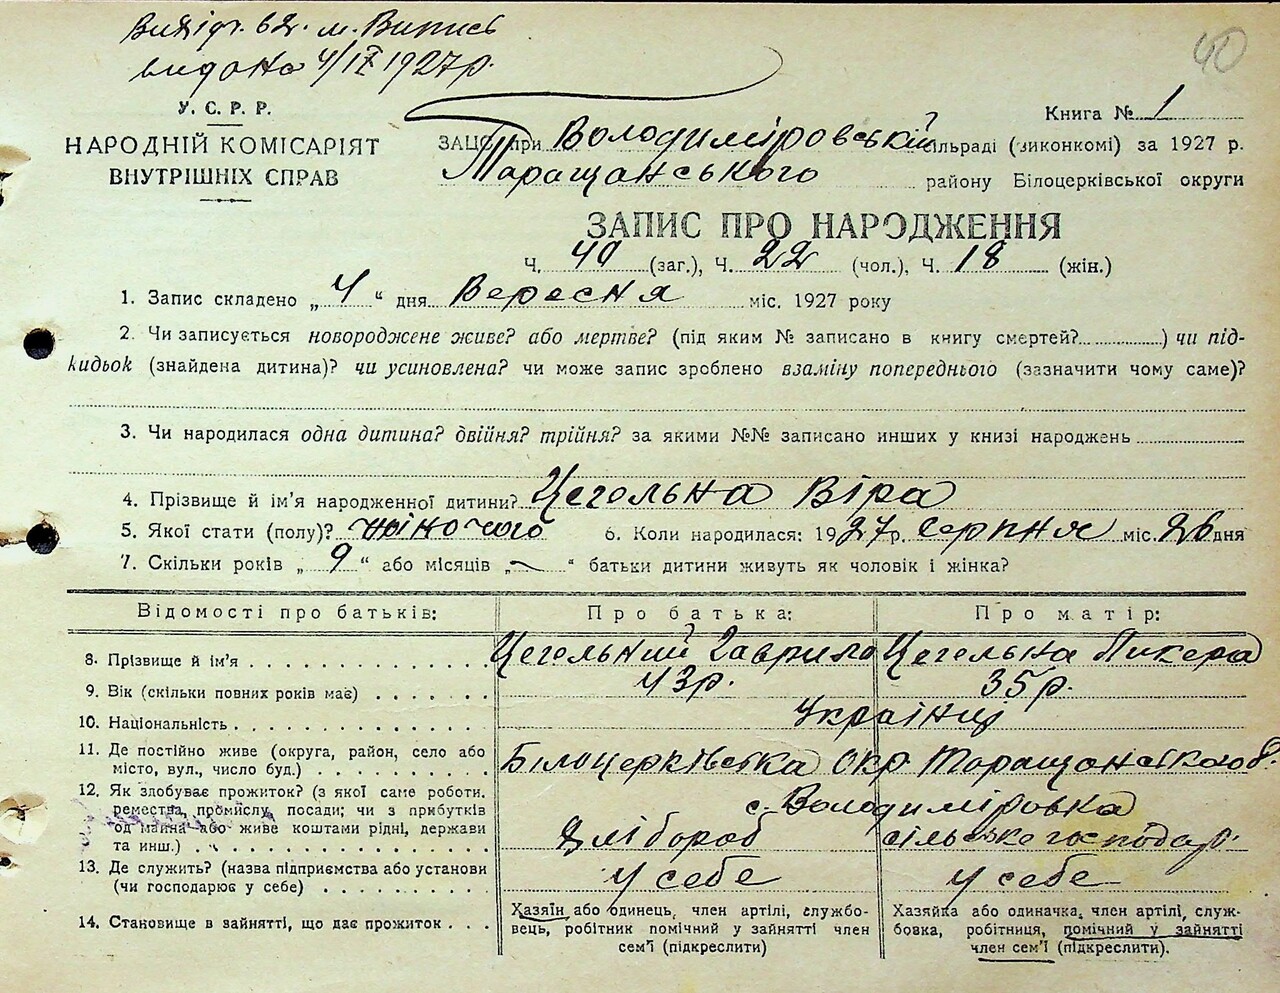 видана 4/IX 1927р.
40
У. С. Р. Р.
НАРОДНІЙ КОМІСАРІЯТ
ВНУТРІШНІХ СПРАВ
Книга № 1
ЗАЦС при Володиміровській сільраді (виконкомі) за 1927 р.
Таращанського району Білоцерківської округи
ЗАПИС ПРО НАРОДЖЕННЯ
Ч. 40 (заг.), Ч. 22 (чол.), Ч. 18 (жін.)
1. Запис складено „ 4 “ дня Вересня міс. 1927 року
2. Чи записується новороджене живе? або мертве? (під яким № записано в книгу смертей?) чи під-
кидьок (знайдена дитина)? чи усиновлена? чи може запис зроблено взаміну попереднього (зазначити чому саме)?
3. Чи народилася одна дитина? двійня? трійня? за якими №№ записано инших у книзі народжень
4. Прізвище й ім'я народженної дитини? Цегельна Віра
5. Якої стати (полу)? жіночого 6. Коли народилася: 1927р. серпня міс. 26 дня
7. Скільки років „ 9 “ або місяців „ — “ батьки дитини живуть як чоловік і жінка?
Відомості про батьків: Про батька: Про матір:
8. Прізвище й ім'я Цегельний Гаврило Цегельна Ликера
9. Вік (скільки повних років має) 43р. 35р.
10. Національність Українці
11. Де постійно живе (округа, район, село або
місто, вул., число буд.) Білоцерківська Окр Таращанського р.
с. Володиміровка
12. Як здобуває прожиток? (з якої саме роботи.
ремества, промислу, посади; чи з прибутків
од майна або живе коштами рідні, держави
та инш.) Хлібороб сільське господар
13. Де служить? (назва підприємства або установи
(чи господарює у себе) у себе у себе
14. Становище в зайнятті, що дає прожиток
Хазяїн або одинець, член артілі, службо-
вець, робітник помічний у зайнятті член
сем'ї (підкреслити)
Хазяйка або одиначка, член артілі, служ-
бовка, робітниця, помічний у зайнятті
член сем'ї (підкреслити).